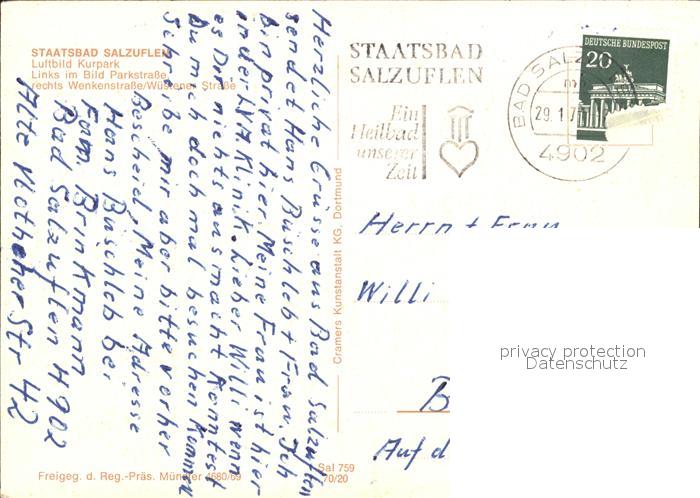 STAATSBAD SALZUFLEN
Luftbild Kurpark
Links im Bild Parkstraße,
rechts Wenkenstraße/Wüstener Straße
Herzliche Grüsse aus Bad Salzuflen
sendet Hans Büschleb + Frau. Ich
bin privat hier. Meine Frau ist hier
in der LVA Klinik. Lieber Willi wenn
es Dir nichts ausmacht könntest
Du mich doch mal besuchen kommen
Schreibe mir aber bitte vorher
Bescheid. Meine Adresse
Hans Büschleb bei
Fam. Brinkmann
Bad Salzuflen 4902
Alte Vlothoher Str 42
Cramers Kunstanstalt KG, Dortmund
Freigeg. d. Reg.-Präs. Münster 4680/69
Sal 759
70/20
STAATSBAD
SALZUFLEN
Ein
Heilbad
unserer
Zeit
BAD SALZ
m
29.1.7
4902
DEUTSCHE BUNDESPOST
20
Herrn + Frau
Willi
B
Auf d
privacy protection
Datenschutz